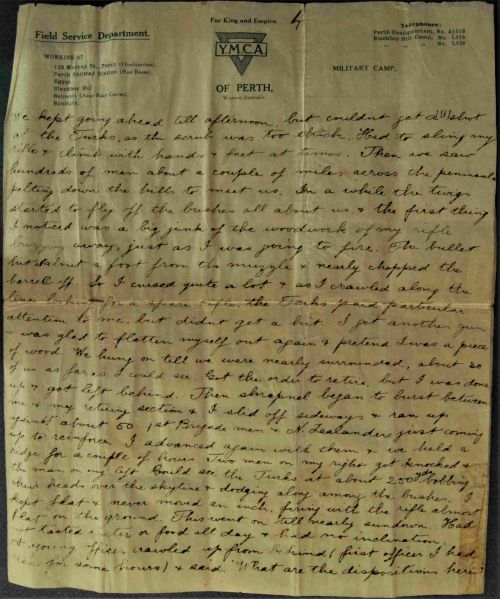 For King and Empire.
4
Field Service Department.
Telephones:
Perth Headquarters, No. A1518
Blackboy Hill Camp, No. L128
WORKING AT
125 Murray St., Perth (Headquarters).
Perth Railway Station (Rest Room).
Egypt.
Blackboy Hill
Belmont
Bunbury.
Y.M.C.A
OF PERTH,
Western Australia.
MILITARY CAMP,
191
We kept going ahead till afternoon, but couldnt get a shot
at the Turks, as the scrub was too thick. Had to sling my
rifle & climb with hands & feet at times. Then we saw
hundreds of men about a couple of miles across the peninsula
pelting down the hills to meet us. In a while the twigs
started to fly off the bushes all about us & the first thing
I noticed was a big junk of the woodwork of my rifle
away, just as I was going to fire. The bullet
hit about a foot from the muzzle & nearly chopped the
barrell off. So I cursed quite a lot & as I crawled along the
lines lookin for a spare rifle, the Turks paid particular
attention to me, but didnt get a hit. I got another gun
& was glad to flatten myself out again & pretend I was a piece
of wood. We hung on till we were nearly surrounded, about 20
of us as far as I could see. Got the order to retire, but I was done
up & got left behind. Then shrapnel began to burst between
me & my retiring section & I slid off sideways & ran up
against about 50 1st Brigade men & N. Zealanders just coming
up to reinforce. I advanced again with them & we held a
ridge for a couple of hours. Two men on my right got knocked &
the man on my left. Could see the Turks at about 250 yds bobbing
their heads over the skyline & dodging along among the bushes. I
kept flat & never moved an inch, firing with the rifle almost
flat on the ground. This went on till nearly sundown. Had
not tasted water or food all day & had no inclination.
A young officer crawled up from behind (first officer I had
seen for some hours) & said "What are the dispositions here?